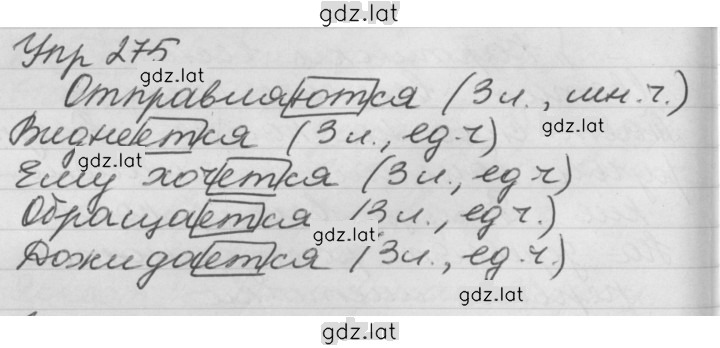 gdz.lat
Упр 275
gdz.lat
Отправляются (3 л., мн.ч.)
Виднеется (3 л., ед.ч)
gdz.lat
gdz.lat
Ему хочется (3 л., ед.ч)
Обращается (3 л., ед.ч.)
gdz.lat
Дожидается (3 л., ед.ч.)
gdz.lat
gdz.lat